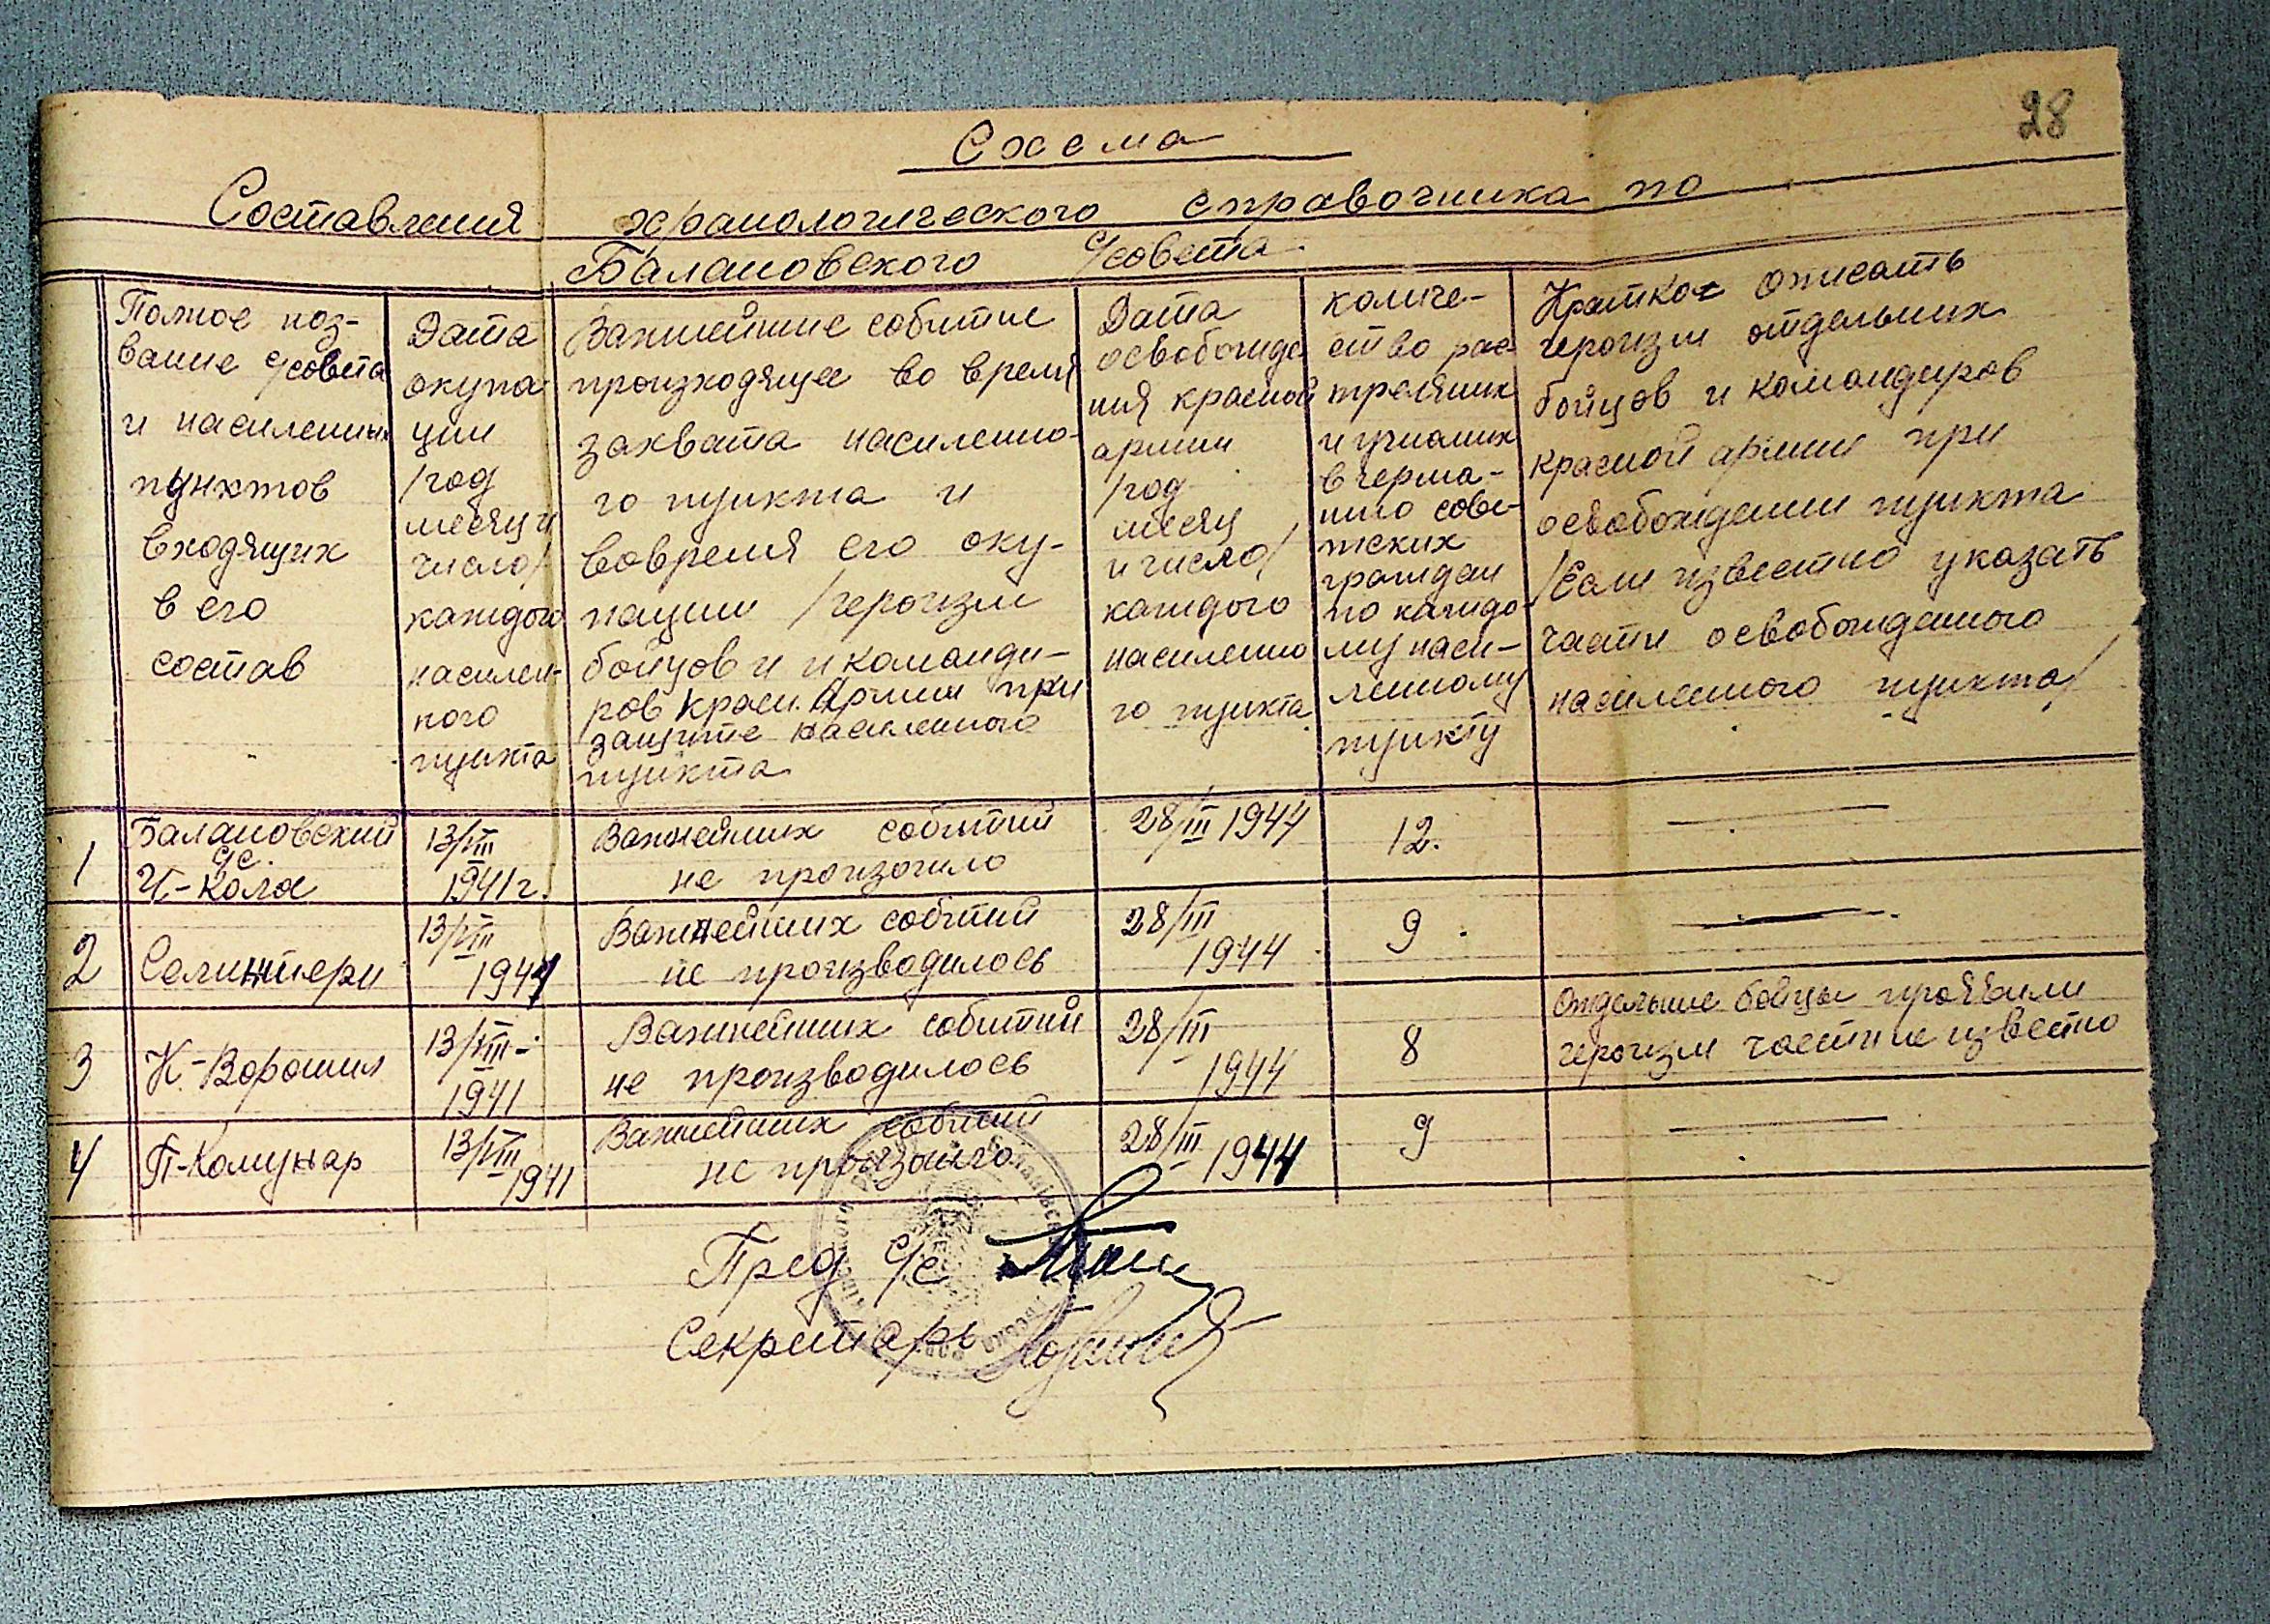 28
Схема
Составления хранологического справочника по
Балановского с/совета.
Полное наз-
вание с/совета
и населенных
пунктов
входящих
в его
состав
Дата
окупа
ции
/год
месяц и
число/
каждого
населен-
ного
пункта
Важнейшие событие
произходящее во время
захвата населено-
го пункта и
вовремя его оку-
пации /героизм
бойцов и и команди-
ров Красн. Армии при
защите населенного
пункта
Дата
освобожде
ния красной
армии
/год
месяц
и число/
каждого
населенно
го пункта
количе-
ство рас
треляных
и угнаных
в герма-
нию сове-
тских
граждан
по каждо-
му насе-
ленному
пункту
Кратко описать
героизм отдельных
бойцов и командиров
красной армии при
освобождении пункта
/Если известно указать
части освобожденого
населенного пункта/
1 Балановский с/с. 13/VIII Важнейших событий 28/III 1944 12. —
Кола 1941 г. не произошло
2 Селинтери 13/VIII Важнейших событий 28/III 9 —
1941 не производилось 1944
3 К-Ворошил 13/VIII- Важнейших событий 28/III 8 Отдельные бойцы проявили
1941 не производилось 1944 героизм части не известно
4 П-Комунар 13/VIII Важнейших событий 28/III 1944 9 —
1941 не произошло
Пред с/с
Секретарь